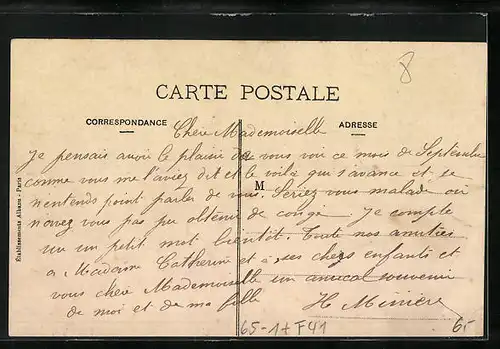 8
CARTE POSTALE
CORRESPONDANCE
ADRESSE
Chère Mademoiselle
Je pensais avoir le plaisir de vous voir ce mois de Septembre
comme vous me l'aviez dit et le voilà qui s'avance et je
n'entends point parler de vous. Seriez vous malade ou
n'avez vous pas pu obtenir de congé Je compte
sur un petit mot bientôt. Toute nos amitiés
M
a Madame Catherine et à ses chers enfants et
vous chère Mademoiselle un amical souvenir
de moi et de ma fille
H Minière
Établissements Alliaux - Paris
65-1+F41
6.-